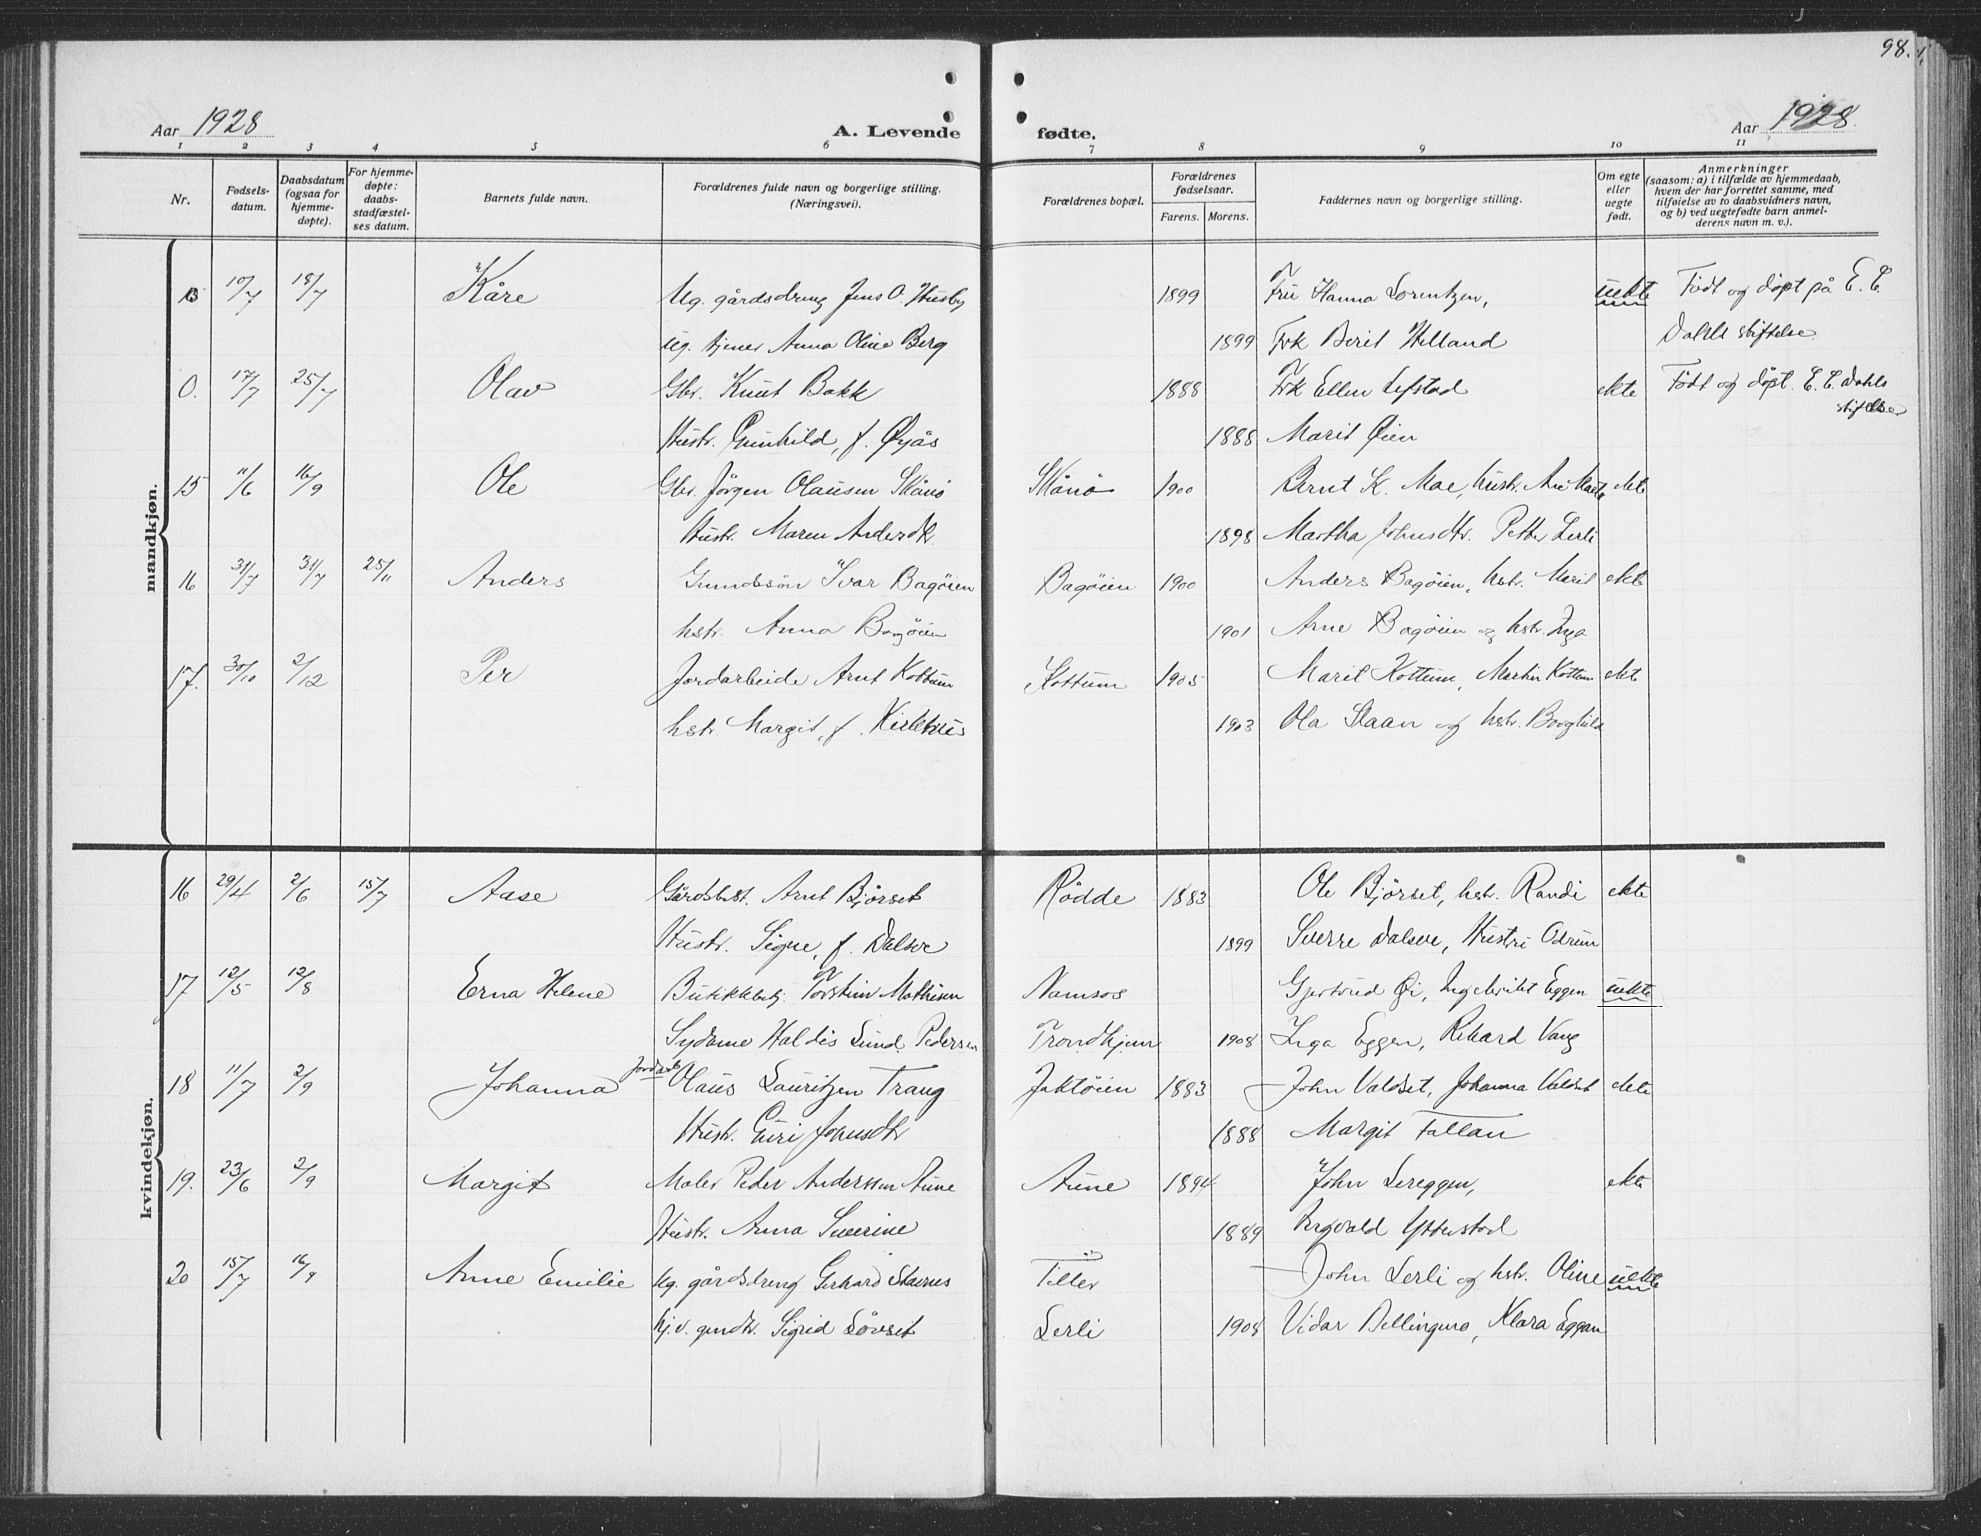 98.
Aar 1928 A. Levende fødte. Aar 1928.
1 2 3 4 5 6 7 8 9 10 11
Nr. Fødsels-datum. Daabsdatum (ogsaa for hjemme-døpte). For hjemme-døpte: daabs-stadfæstel-ses datum. Barnets fulde navn. Forældrenes fulde navn og borgerlige stilling. (Næringsvei). Forældrenes bopæl. Forældrenes fødselsaar. Farens. Morens. Faddernes navn og borgerlige stilling. Om egte eller uegte født. Anmerkninger (saasom: a) i tilfælde av hjemmedaab, hvem der har forrettet samme, med tilføielse av to daabsvidners navn, og b) ved uegtefødte barn anmel-derens navn m. v.).
mandkjøn.
10/7 18/7 Kåre Ug. gårdsdreng Jens O. Husby 1899 Fru Hanna Lorentzen, uekte Født og døpt på E. C.
ug. tjener Anna Oline Berg 1899 Frk Berit Helland Dahls stiftelse
0. 17/7 25/7 Olav Gbr. Knut Bakk 1888 Frk Ellen Lefstad ekte Født og døpt. E. C. Dahls
stiftelse
Hustr. Gunhild, f. Øyås 1888 Marit Øien
15 11/6 16/9 Ole Gbr. Jörgen Olausen Skånö Skånö 1900 Bernt K. Moe, hustr. ekte
Hustr. Maren Andersdtr. 1898 Martha Johnsdtr. Petter Lerli
16 31/7 31/7 25/11 Anders Ivar Bagöien Bagöien 1900 Anders Bagöien, hstr. Marit ekte
hstr. Anna Bagöien 1901 Arne Bagöien og hstr. Inga
17. 30/10 2/12 Per Jordarbeide Arnt Kottum Kottum 1905 Marit Kottum, Martin Kottum ekte
hstr. Margit, f. 1903 Ola Slaan og hstr. Borghild
kvindekjøn.
16 29/4 2/6 15/7 Aase Gårdsbest. Arnt Bjórset Rödde 1883 Ole Bjørset, hstr. Randi ekte
Hustr. Signe, f. Dalsve 1899 Sverre Dalsve, Hustru Odrun
17 12/5 12/8 Erna Helene Butikkbetj. Torstein Mathisen Namsos Gjertrud Øi, Ingebrikt Eggen uekte
Sydame Haldis Lund Pedersen Trondhjem 1908 Inga Eggen, Rikard Vang
18 11/7 2/9 Johanna Jordarb. Olaus Lauritzen Trang Jaktöien 1883 John Valdset, Johanna Valdset ekte
Hustr. Guri Johnsdtr 1888 Margit Fallan
19. 23/6 2/9 Margit Maler Peder Anderssen Aune Aune 1894 John Lereggen, ekte
Hustr. Anna Severine 1889 Ingvald Ytterstad
20 15/7 16/9 Anne Emilie Ug. gårdsdreng Gerhard Stavnes Tiller John Lerli og hstr. Oline uekte
hj.v. gmdtr. Sigrid Lövset Lerli 1908 Vidar Bellingmo, Klara Eggan